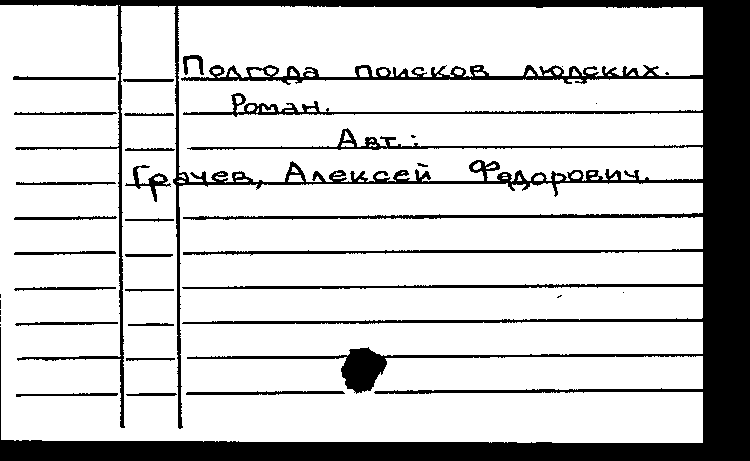 Полгода поисков людских.
Роман.
Авт.:
Грачев, Алексей Федорович.